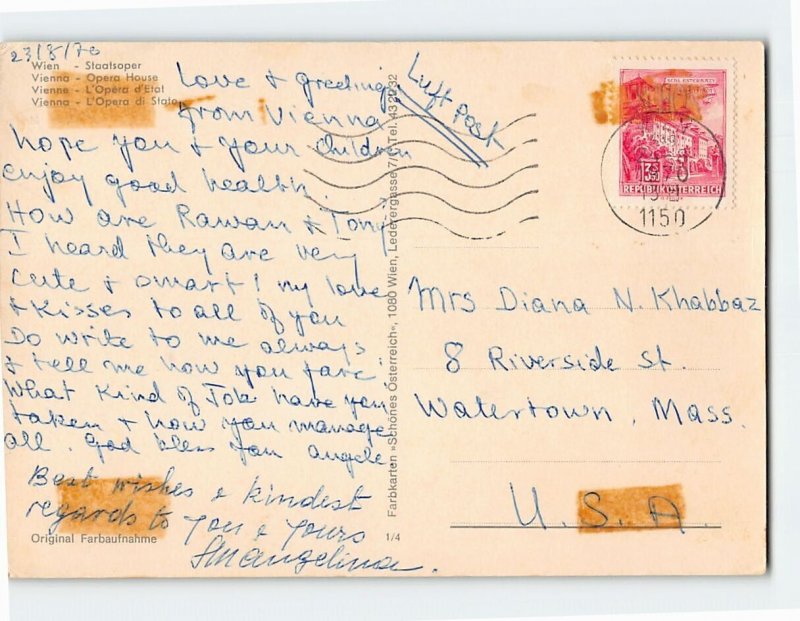 23/8/70
Wien - Staatsoper
Vienna - Opera House
Vienne - L'Opéra d'Etat
Vienna - L'Opera di Stato
Love & greetings
from Vienna
hope you & your children
enjoy good health.
How are Rawan & Tony
I heard they are very
cute & smart! my love
& kisses to all of you
Do write to me always
& tell me how you fare:
What kind of Job have you
taken & how you manage
all. God bless you angele
Best wishes & kindest
regards to you & yours
Original Farbaufnahme
1/4
Farbkarten »Schönes Österreich«, 1080 Wien, Lederergasse
Luft Post
REPUBLIK ÖSTERREICH
1150
Mrs Diana N. Khabbaz
8 Riverside st.
Watertown, Mass.
U.S.A.